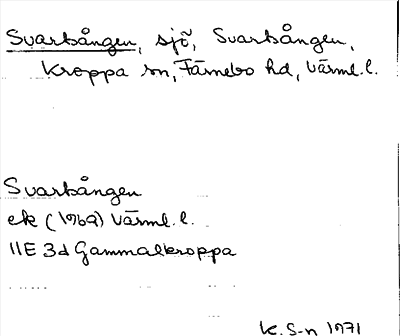 Svartsången, sjö, Svartsången,
Kroppa sn, Färnebo hd, Värml. l.
Svartsången
ek (1969) Värml. l.
11E 3d Gammalkroppa
K. S-n 1971